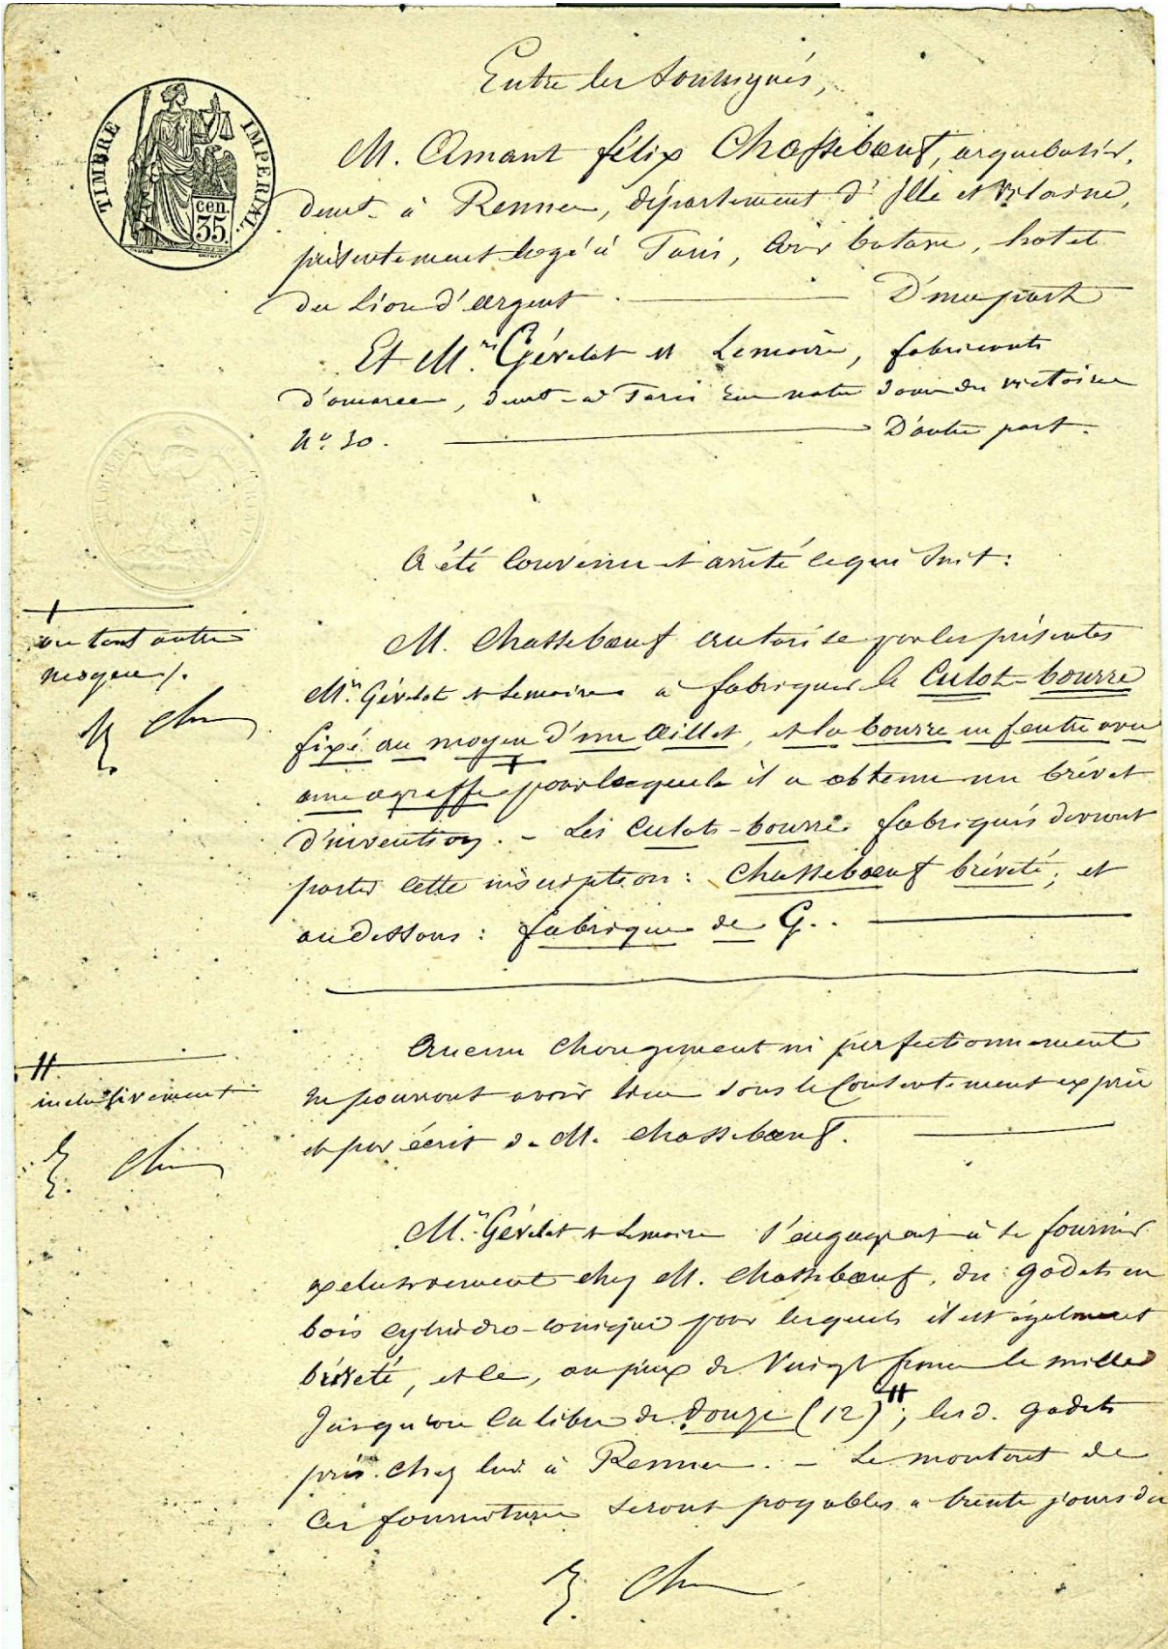 Entre les soussignés,
TIMBRE IMPERIAL.
cen.
35.
M. Amant félix Chassebœuf, arquebusier,
demt. à Rennes, département d'Ille et Vilaine,
présentement logé à Paris, Cour batave, hotel
du Lion d'argent D'une part
Et Mrs. Gévelot et Lemaire, fabricants
d'amorces, demt. à Paris rue notre dame des victoires
No. 30. D'autre part.
A été convenu et arrêté ce qui suit:
M. Chassebœuf autorise par les présentes
Mrs. Gévelot et Lemaire à fabriquer le Culot-bourre
fixé au moyen d'un œillet, et la bourre en feutre avec
une agraffe + pour lesquels il a obtenu un brévet
d'invention. - Les Culots-bourre fabriqués devront
porter cette inscription: Chassebœuf bréveté; et
au dessous: fabrique de G..
+
ou tout autre
moyen /.
Aucun changement ni perfectionnement
ne pourront avoir lieu sans le Consentement exprès
et par écrit de M. Chassebœuf.
H
inclusivement
Mrs. Gévelot et Lemaire s'engagent à se fournir
exclusivement chez M. Chassebœuf, des godets en
bois Cylindro-conique pour lesquels il est également
bréveté, et ce, au prix de Vingt francs le mille
jusqu'au calibre de douze (12) H; les d. godets
pris chez lui à Rennes. - Le montant de
ces fournitures seront payables à trente jours du